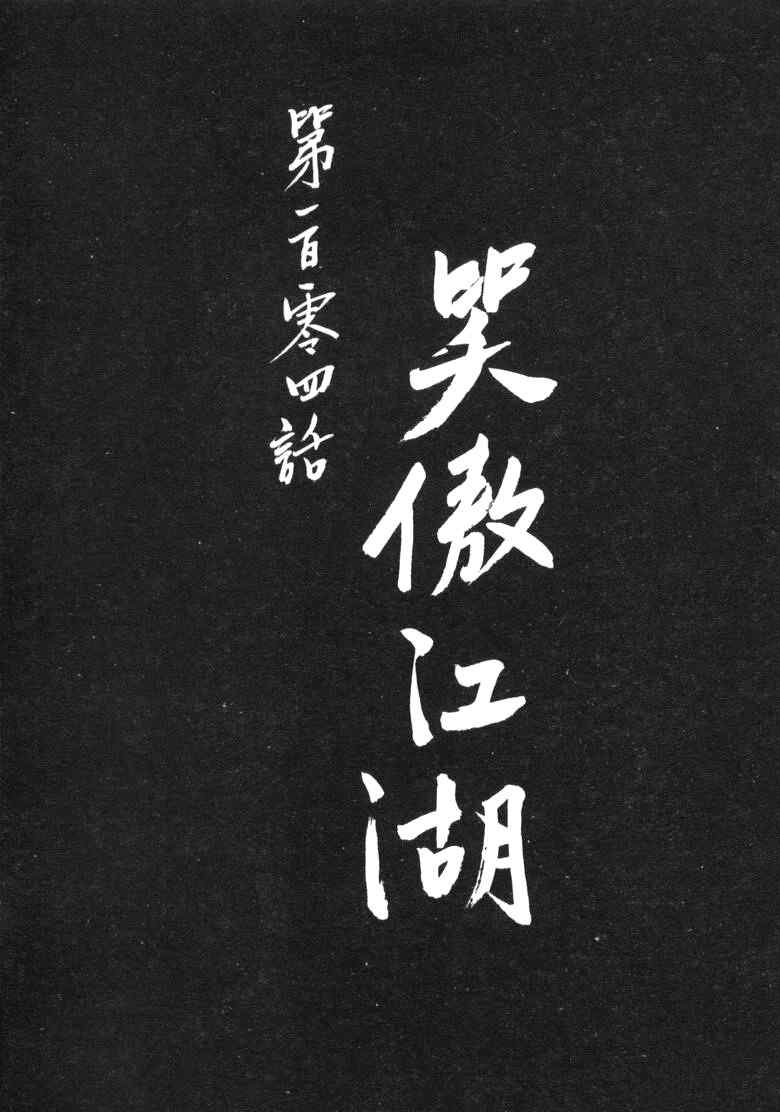 笑傲江湖
第一百零四話